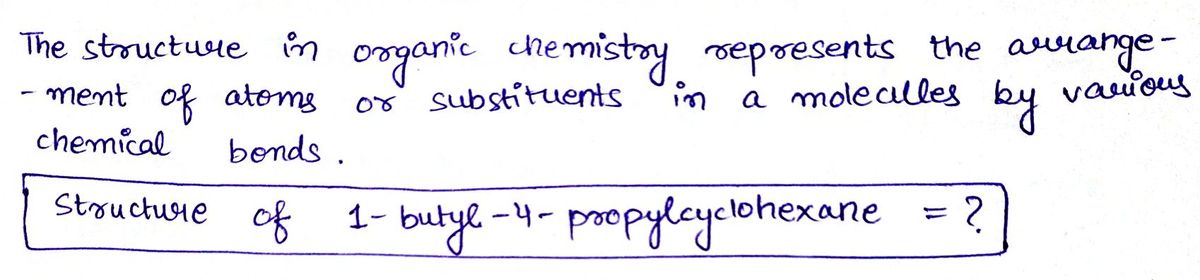 The structure in organic chemistry represents the arrange-
- ment of atoms or substituents in a molecules by various
chemical bonds.
Structure of 1-butyl-4-propylcyclohexane = ?